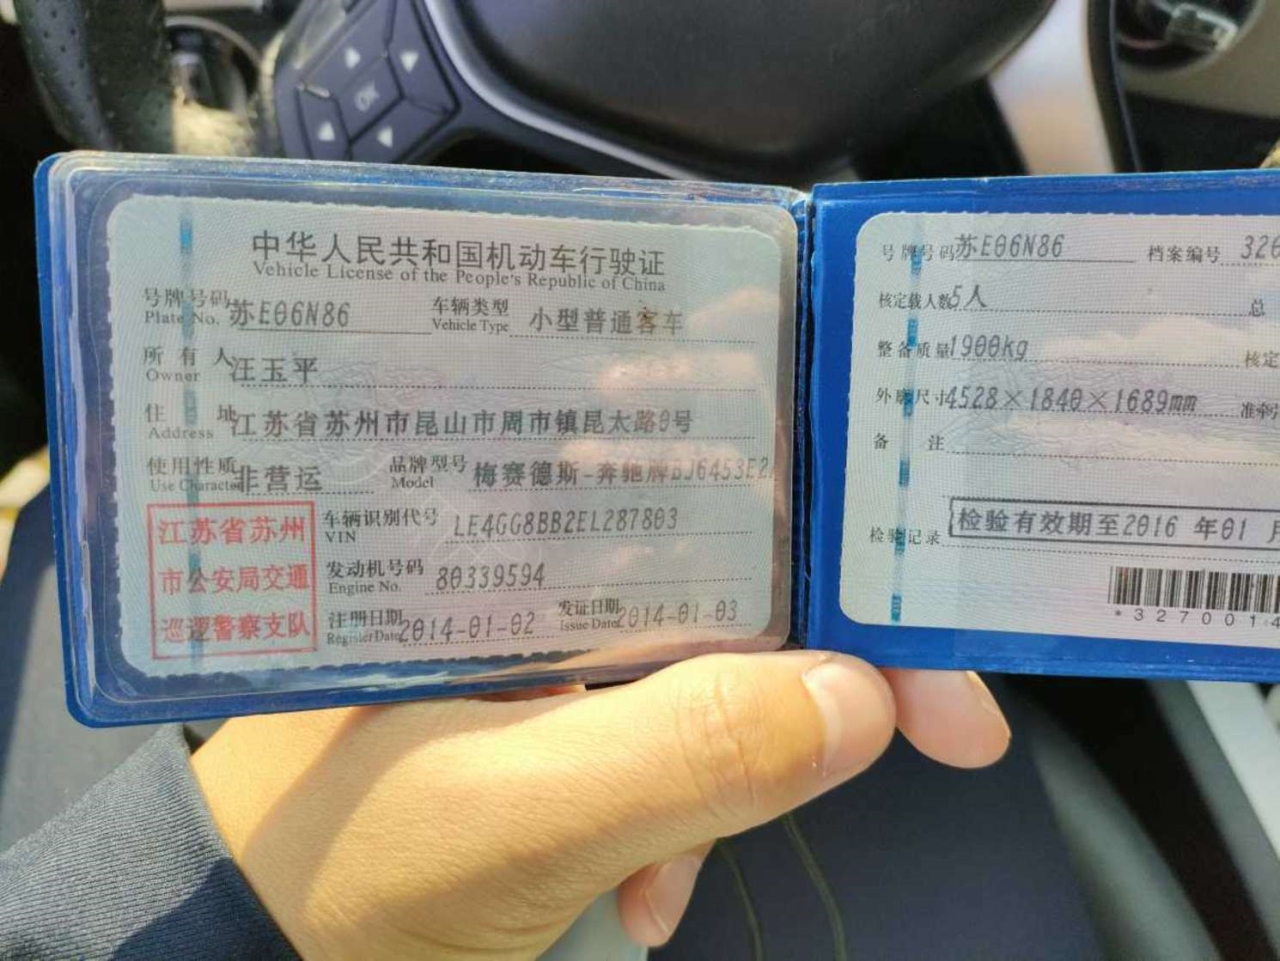 OK
中华人民共和国机动车行驶证
Vehicle License of the People's Republic of China
号牌号码 苏E06N86 车辆类型 小型普通客车
Plate No. Vehicle Type
所有人 汪玉平
Owner
住址 江苏省苏州市昆山市周市镇昆太路0号
Address
使用性质 非营运 品牌型号 梅赛德斯-奔驰牌BJ6453E2
Use Character Model
江苏省苏州
市公安局交通
巡逻警察支队
车辆识别代号 LE4GG8BB2EL287803
VIN
发动机号码 80339594
Engine No.
注册日期 2014-01-02 发证日期 2014-01-03
Register Date Issue Date
号牌号码 苏E06N86 档案编号 320
核定载人数 5人 总
整备质量 1900kg 核定
外廓尺寸 4528×1840×1689mm 准牵
备注
检验记录 检验有效期至2016 年01 月
*3270014